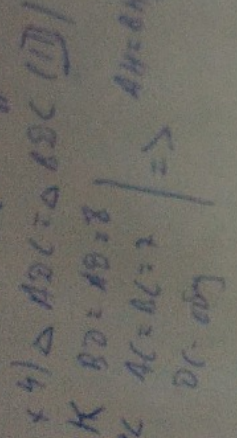 4) △ ADC = △ BDC (III)
BD = AB = 8
AC = BC = 7 | =>
DC - общ